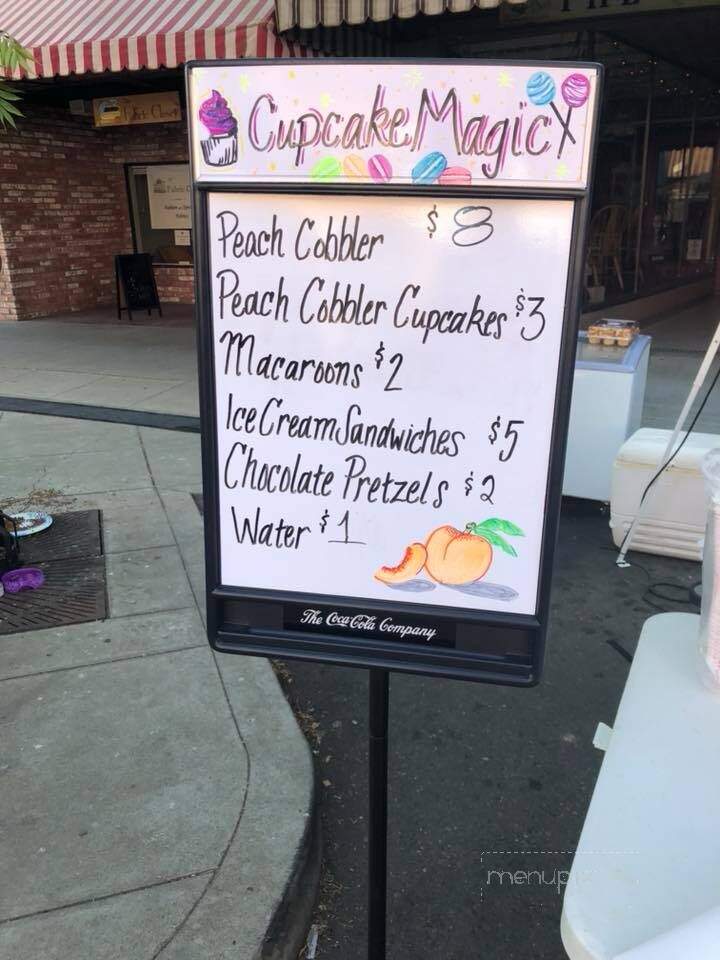 CupcakeMagicX
Peach Cobbler $8
Peach Cobbler Cupcakes $3
Macaroons $2
Ice Cream Sandwiches $5
Chocolate Pretzels $2
Water $1
The Coca-Cola Company
menup